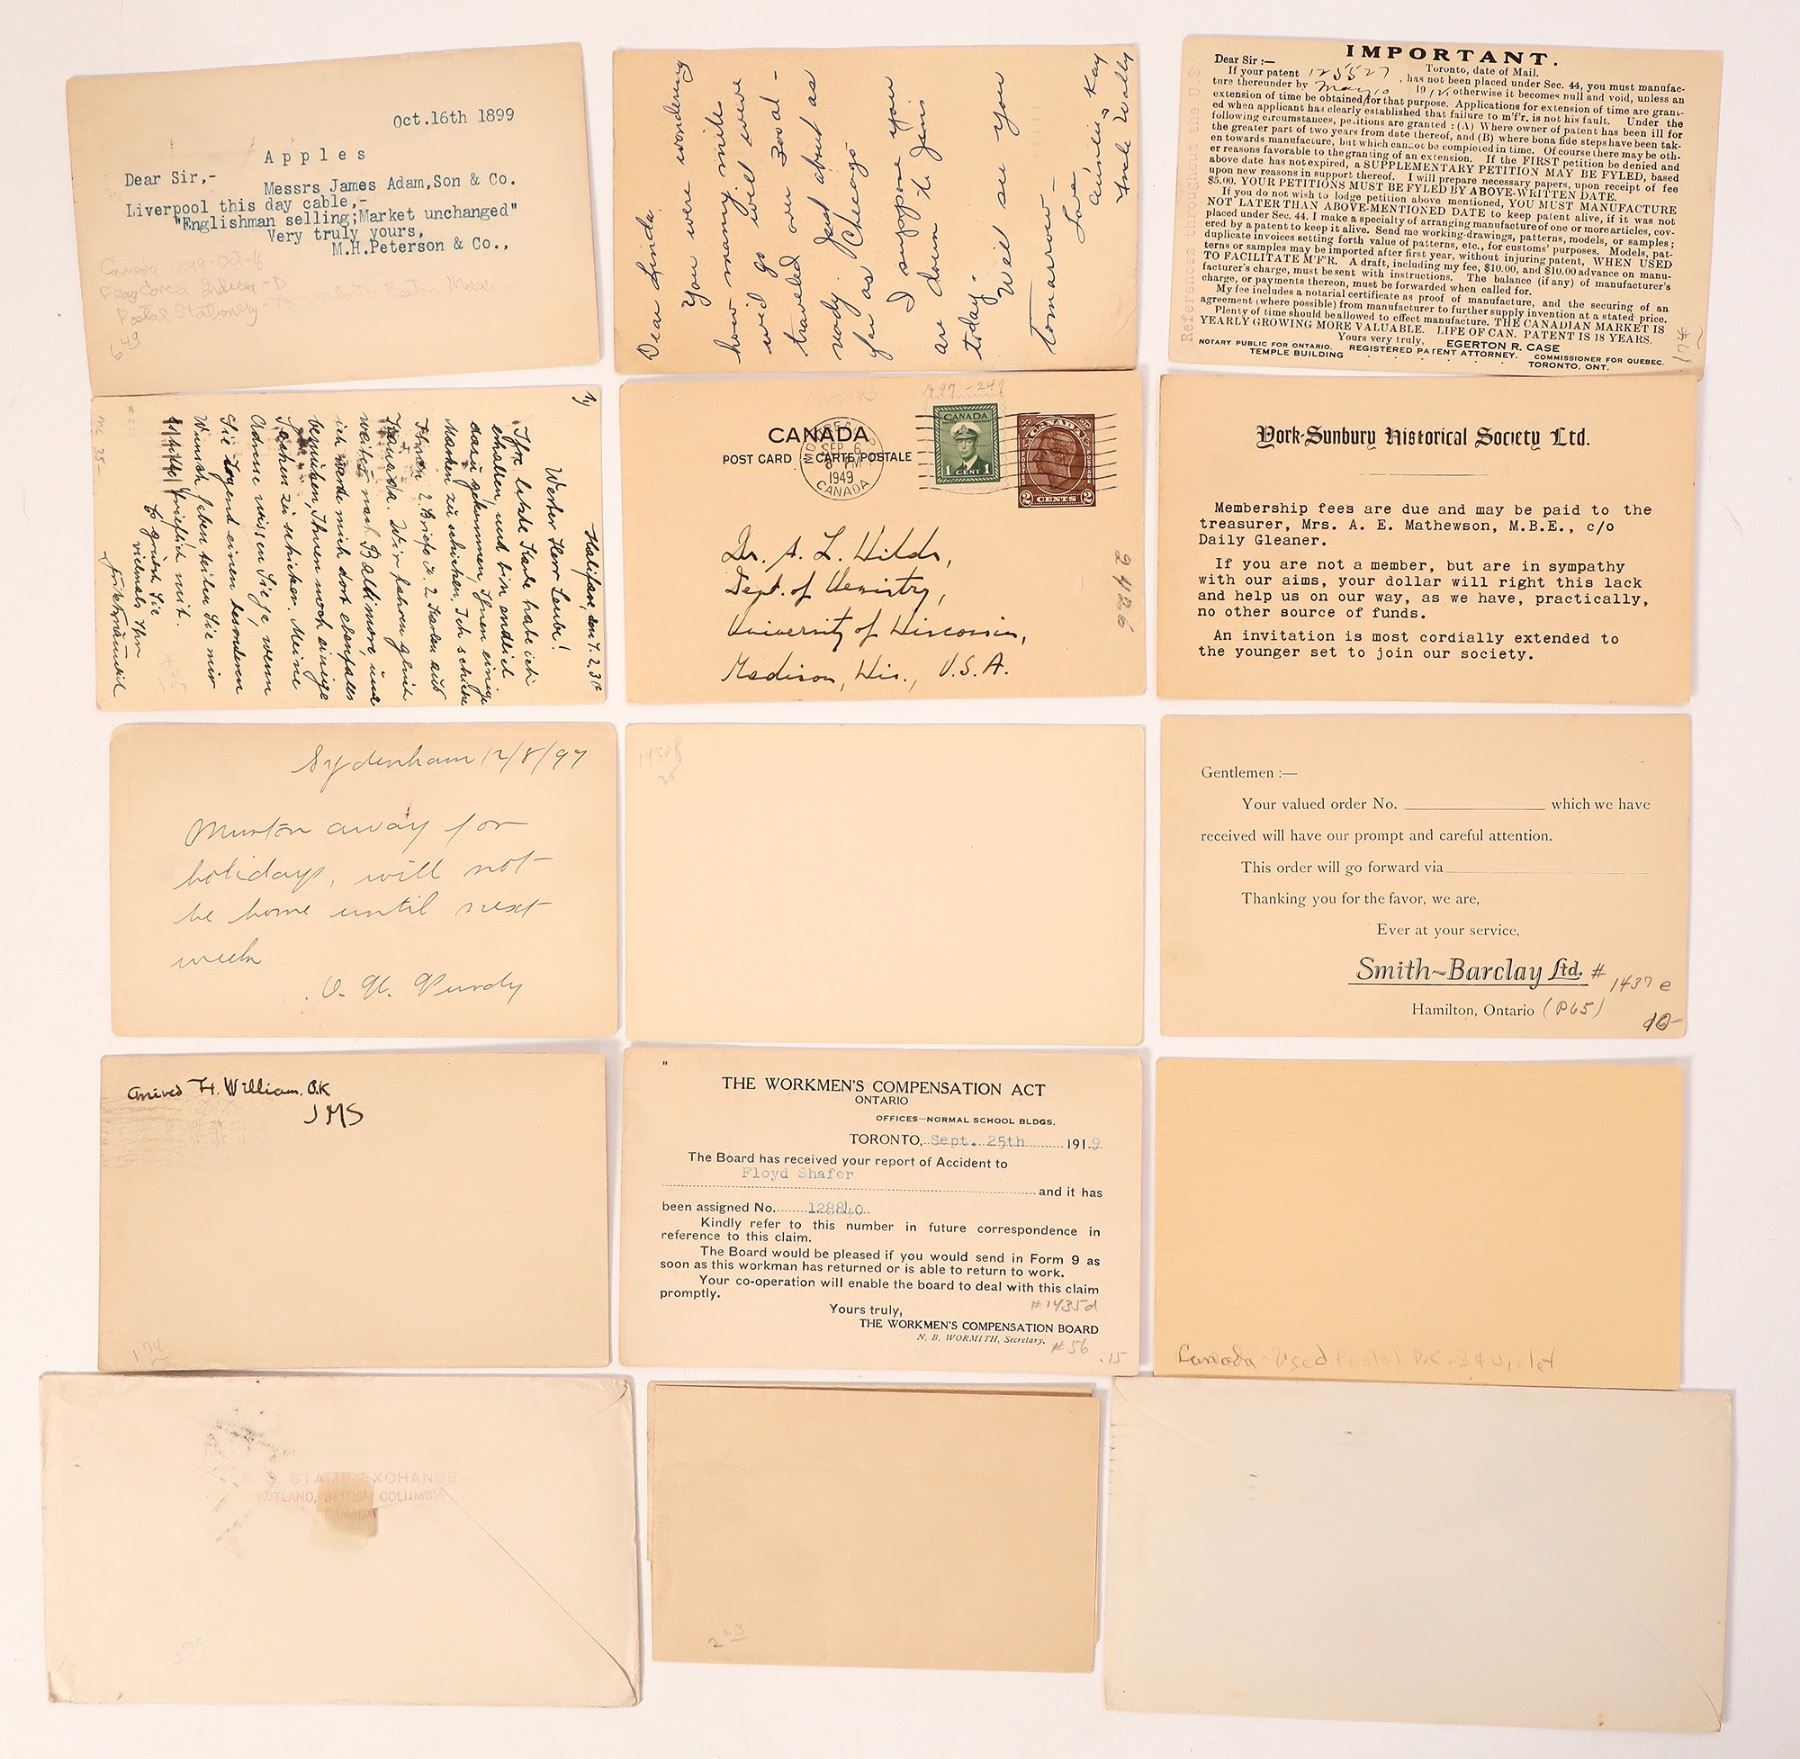 Oct.16th 1899
Apples
Dear Sir,-
Messrs James Adam,Son & Co.
Liverpool this day cable,-
"Englishman selling;Market unchanged"
Very truly yours,
M.H.Peterson & Co.,
Canada 1899-Oct-16
Postal Stationery-
649
Dear Linda.
You were wondering
how many mile
we'd go - will we've
traveled over 300 al-
ready. Just about as
far as Chicago
I suppose you
are down to Jenis
today -
We'll see you
tomarrow -
Love
Auntie Kay
Uncle Wally
References throughout the U.S
IMPORTANT.
Dear Sir :—
Toronto, date of Mail.
If your patent 125527 , has not been placed under Sec. 44, you must manufac-
ture thereunder by May 10 1912, otherwise it becomes null and void, unless an
extension of time be obtained for that purpose. Applications for extension of time are grant-
ed when applicant has clearly established that failure to m'f'r. is not his fault. Under the
following circumstances, petitions are granted : (A) Where owner of patent has been ill for
the greater part of two years from date thereof, and (B) where bona fide steps have been tak-
en towards manufacture, but which cannot be completed in time. Of course there may be oth-
er reasons favorable to the granting of an extension. If the FIRST petition be denied and
above date has not expired, a SUPPLEMENTARY PETITION MAY BE FYLED, based
upon new reasons in support thereof. I will prepare necessary papers, upon receipt of fee
$5.00. YOUR PETITIONS MUST BE FYLED BY ABOVE-WRITTEN DATE.
If you do not wish to lodge petition above mentioned, YOU MUST MANUFACTURE
NOT LATER THAN ABOVE-MENTIONED DATE to keep patent alive, if it was not
placed under Sec. 44. I make a specialty of arranging manufacture of one or more articles, cov-
ered by a patent to keep it alive. Send me working-drawings, patterns, models, or samples ;
duplicate invoices setting forth value of patterns, etc., for customs' purposes. Models, pat-
terns or samples may be imported after first year, without injuring patent, WHEN USED
TO FACILITATE M'F'R. A draft, including my fee, $10.00, and $10.00 advance on manu-
facturer's charge, must be sent with instructions. The balance (if any) of manufacturer's
charge, or payments thereon, must be forwarded when called for.
My fee includes a notarial certificate as proof of manufacture, and the securing of an
agreement (where possible) from manufacturer to further supply invention at a stated price.
Plenty of time should be allowed to effect manufacture. THE CANADIAN MARKET IS
YEARLY GROWING MORE VALUABLE. LIFE OF CAN. PATENT IS 18 YEARS.
Yours very truly,
EGERTON R. CASE
NOTARY PUBLIC FOR ONTARIO. REGISTERED PATENT ATTORNEY. COMMISSIONER FOR QUEBEC.
TEMPLE BUILDING . . . . . TORONTO. ONT.
Halifax, den 7.2.38
Werter Herr Laube!
Ihre letzte Karte habe ich
erhalten, und bin endlich
dazu gekommen, Ihnen einige
Marken zu schicken. Ich schicke
Ihnen 2 Briefe u. 2 Karten aus
Kanada. Wir fahren gleich
weiter nach Baltimore, und
ich werde mich dort ebenfalls
bemühen, Ihnen noch einige
Sachen zu schicken. Meine
Adresse wissen Sie ja, wenn
Sie irgend einen besonderen
Wunsch haben teilen Sie mir
bitte brieflich mit.
Es grüßt Sie
vielmals Ihr
CANADA
POST CARD CARTE POSTALE
SEP 6
1949
CANADA
CANADA
1 CENT 1
CANADA
2 CENTS 2
Dr. A. L. Wilds,
Dept. of Chemistry,
University of Wisconsin,
Madison, Wis., U.S.A.
2426
York-Sunbury Historical Society Ltd.
Membership fees are due and may be paid to the
treasurer, Mrs. A. E. Mathewson, M.B.E., c/o
Daily Gleaner.
If you are not a member, but are in sympathy
with our aims, your dollar will right this lack
and help us on our way, as we have, practically,
no other source of funds.
An invitation is most cordially extended to
the younger set to join our society.
Sydenham 12/8/97
Murton away for
holidays, will not
be home until next
week
Purdy
35
Gentlemen :—
Your valued order No. which we have
received will have our prompt and careful attention.
This order will go forward via
Thanking you for the favor, we are,
Ever at your service,
Smith-Barclay Ltd. # 1437e
Hamilton, Ontario (P65)
10-
arrived Ft. William. O.K
JMS
174
THE WORKMEN'S COMPENSATION ACT
ONTARIO
OFFICES—NORMAL SCHOOL BLDGS.
TORONTO, Sept. 25th 1919
The Board has received your report of Accident to
Floyd Shafer
and it has
been assigned No. 128840
Kindly refer to this number in future correspondence in
reference to this claim.
The Board would be pleased if you would send in Form 9 as
soon as this workman has returned or is able to return to work.
Your co-operation will enable the board to deal with this claim
promptly.
#1435d
Yours truly,
THE WORKMEN'S COMPENSATION BOARD
N. B. WORMITH, Secretary.
#56
.15
Canada - Used Postal P.C. 3¢ violet
B. C. STAMP EXCHANGE
RUTLAND, BRITISH COLUMBIA
CANADA
395
223